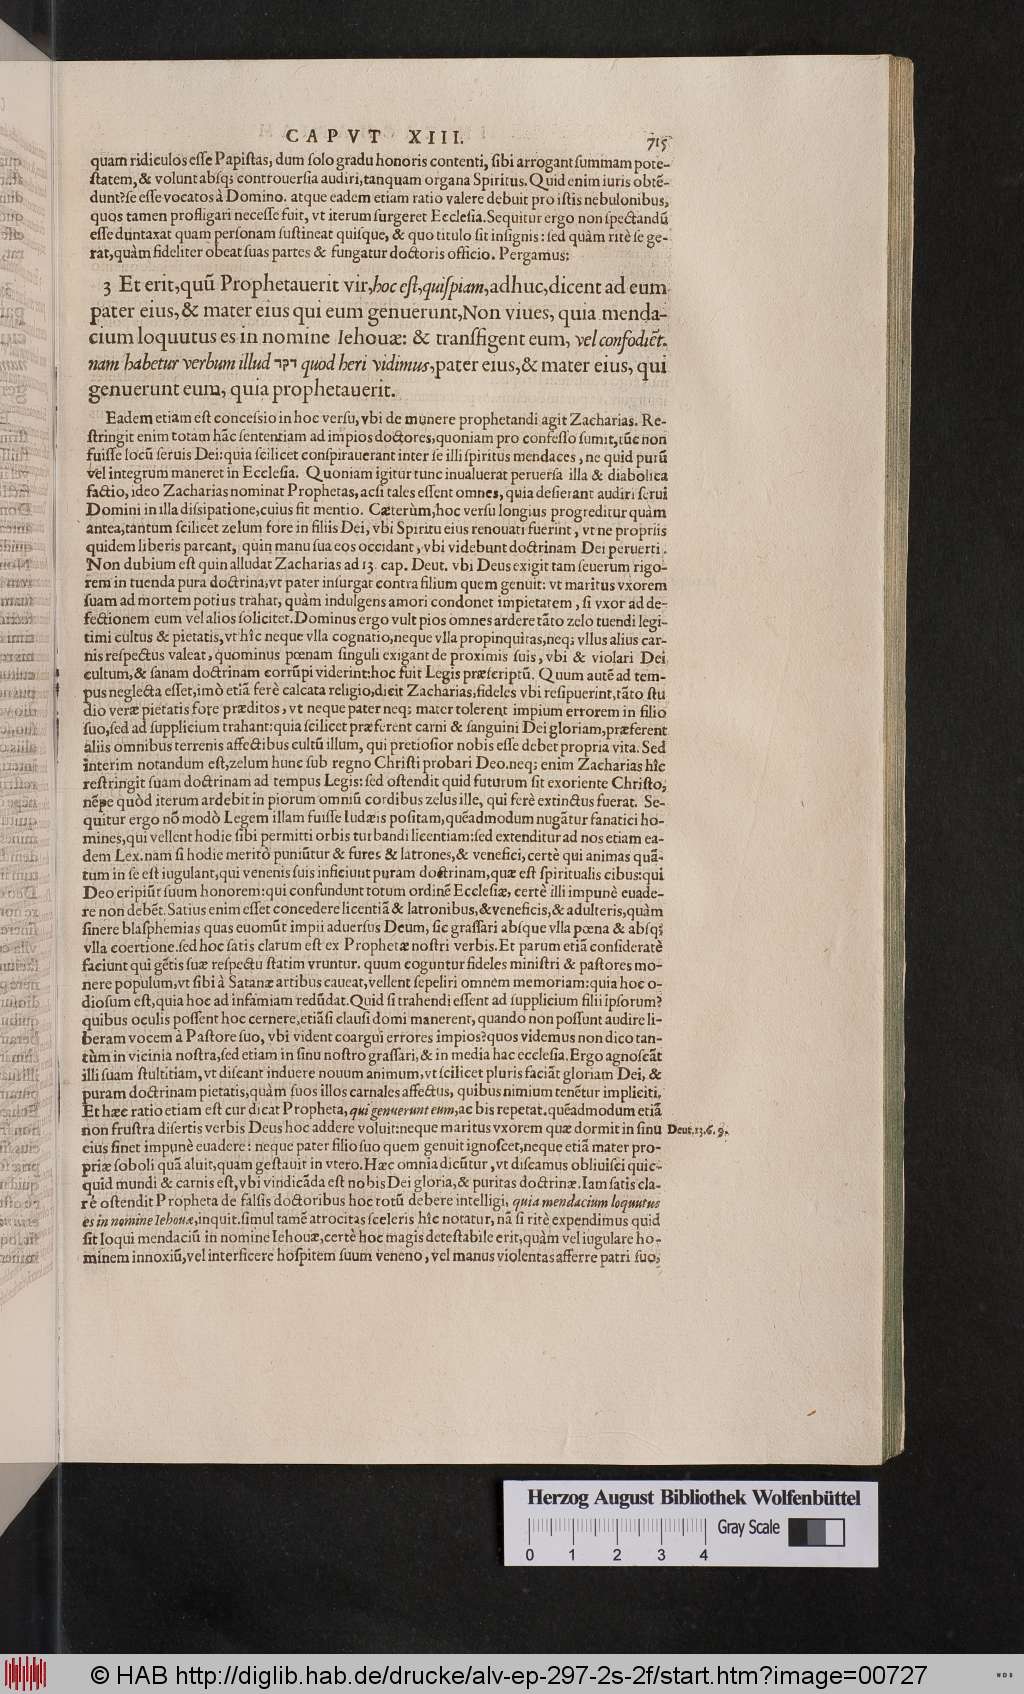 CAPVT XIII. 715
quam ridiculos eſſe Papiſtas, dum ſolo gradu honoris contenti, ſibi arrogant ſummam pote-
ſtatem, & volunt abſq; controuerſia audiri, tanquam organa Spiritus. Quid enim iuris obtē-
dunt? ſe eſſe vocatos à Domino. atque eadem etiam ratio valere debuit pro iſtis nebulonibus,
quos tamen profligari neceſſe fuit, vt iterum ſurgeret Eccleſia. Sequitur ergo non ſpectandū
eſſe duntaxat quam perſonam ſuſtineat quiſque, & quo titulo ſit inſignis: ſed quàm ritè ſe ge-
rat, quàm fideliter obeat ſuas partes & fungatur doctoris officio. Pergamus:
3 Et erit, quū Prophetauerit vir, hoc eſt, quiſpiam, adhuc, dicent ad eum
pater eius, & mater eius qui eum genuerunt, Non viues, quia menda-
cium loquutus es in nomine Iehouæ: & transfigent eum, vel confodiēt.
nam habetur verbum illud דקר quod heri vidimus, pater eius, & mater eius, qui
genuerunt eum, quia prophetauerit.
Eadem etiam eſt conceſsio in hoc verſu, vbi de munere prophetandi agit Zacharias. Re-
ſtringit enim totam hāc ſententiam ad impios doctores, quoniam pro confeſſo ſumit, tūc non
fuiſſe locū ſeruis Dei: quia ſcilicet conſpirauerant inter ſe illi ſpiritus mendaces, ne quid purū
vel integrum maneret in Eccleſia. Quoniam igitur tunc inualuerat peruerſa illa & diabolica
factio, ideo Zacharias nominat Prophetas, acſi tales eſſent omnes, quia deſierant audiri ſerui
Domini in illa diſsipatione, cuius fit mentio. Cæterùm, hoc verſu longius progreditur quàm
antea, tantum ſcilicet zelum fore in filiis Dei, vbi Spiritu eius renouati fuerint, vt ne propriis
quidem liberis parcant, quin manu ſua eos occidant, vbi videbunt doctrinam Dei peruerti.
Non dubium eſt quin alludat Zacharias ad 13. cap. Deut. vbi Deus exigit tam ſeuerum rigo-
rem in tuenda pura doctrina, vt pater inſurgat contra filium quem genuit: vt maritus vxorem
ſuam ad mortem potius trahat, quàm indulgens amori condonet impietatem, ſi vxor ad de-
fectionem eum vel alios ſolicitet. Dominus ergo vult pios omnes ardere tāto zelo tuendi legi-
timi cultus & pietatis, vt hîc neque vlla cognatio, neque vlla propinquitas, neq; vllus alius car-
nis reſpectus valeat, quominus pœnam ſinguli exigant de proximis ſuis, vbi & violari Dei
cultum, & ſanam doctrinam corrūpi viderint: hoc fuit Legis præſcriptū. Quum autē ad tem-
pus neglecta eſſet, imò etiā ferè calcata religio, dicit Zacharias, fideles vbi reſipuerint, tāto ſtu
dio veræ pietatis fore præditos, vt neque pater neq; mater tolerent impium errorem in filio
ſuo, ſed ad ſupplicium trahant: quia ſcilicet præferent carni & ſanguini Dei gloriam, præferent
aliis omnibus terrenis affectibus cultū illum, qui pretioſior nobis eſſe debet propria vita. Sed
interim notandum eſt, zelum hunc ſub regno Chriſti probari Deo. neq; enim Zacharias hîc
reſtringit ſuam doctrinam ad tempus Legis: ſed oſtendit quid futurum ſit exoriente Chriſto,
nēpe quòd iterum ardebit in piorum omniū cordibus zelus ille, qui ferè extinctus fuerat. Se-
quitur ergo nō modò Legem illam fuiſſe Iudæis poſitam, quēadmodum nugātur fanatici ho-
mines, qui vellent hodie ſibi permitti orbis turbandi licentiam: ſed extenditur ad nos etiam ea-
dem Lex. nam ſi hodie meritò puniūtur & fures & latrones, & venefici, certè qui animas quā-
tum in ſe eſt iugulant, qui venenis ſuis inficiunt puram doctrinam, quæ eſt ſpiritualis cibus: qui
Deo eripiūt ſuum honorem: qui confundunt totum ordinē Eccleſiæ, certè illi impunè euade-
re non debēt. Satius enim eſſet concedere licentiā & latronibus, & veneficis, & adulteris, quàm
ſinere blaſphemias quas euomūt impii aduerſus Deum, ſic graſſari abſque vlla pœna & abſq;
vlla coertione. ſed hoc ſatis clarum eſt ex Prophetæ noſtri verbis. Et parum etiā conſideratè
faciunt qui gētis ſuæ reſpectu ſtatim vruntur. quum coguntur fideles miniſtri & paſtores mo-
nere populum, vt ſibi à Satanæ artibus caueat, vellent ſepeliri omnem memoriam: quia hoc o-
dioſum eſt, quia hoc ad infamiam redūdat. Quid ſi trahendi eſſent ad ſupplicium filii ipſorum?
quibus oculis poſſent hoc cernere, etiāſi clauſi domi manerent, quando non poſſunt audire li-
beram vocem à Paſtore ſuo, vbi vident coargui errores impios? quos videmus non dico tan-
tùm in vicinia noſtra, ſed etiam in ſinu noſtro graſſari, & in media hac eccleſia. Ergo agnoſcāt
illi ſuam ſtultitiam, vt diſcant induere nouum animum, vt ſcilicet pluris faciāt gloriam Dei, &
puram doctrinam pietatis, quàm ſuos illos carnales affectus, quibus nimium tenētur impliciti.
Et hæc ratio etiam eſt cur dicat Propheta, qui genuerunt eum, ac bis repetat. quēadmodum etiā
non fruſtra diſertis verbis Deus hoc addere voluit: neque maritus vxorem quæ dormit in ſinu Deut. 13. 6. 9.
eius ſinet impunè euadere: neque pater filio ſuo quem genuit ignoſcet, neque etiā mater pro-
priæ ſoboli quā aluit, quam geſtauit in vtero. Hæc omnia dicūtur, vt diſcamus obliuiſci quic-
quid mundi & carnis eſt, vbi vindicāda eſt nobis Dei gloria, & puritas doctrinæ. Iam ſatis cla-
rè oſtendit Propheta de falſis doctoribus hoc totū debere intelligi, quia mendacium loquutus
es in nomine Iehouæ, inquit. ſimul tamē atrocitas ſceleris hîc notatur, nā ſi ritè expendimus quid
ſit loqui mendaciū in nomine Iehouæ, certè hoc magis deteſtabile erit, quàm vel iugulare ho-
minem innoxiū, vel interficere hoſpitem ſuum veneno, vel manus violentas afferre patri ſuo,
Herzog August Bibliothek Wolfenbüttel
Gray Scale
0 1 2 3 4
© HAB http://diglib.hab.de/drucke/alv-ep-297-2s-2f/start.htm?image=00727